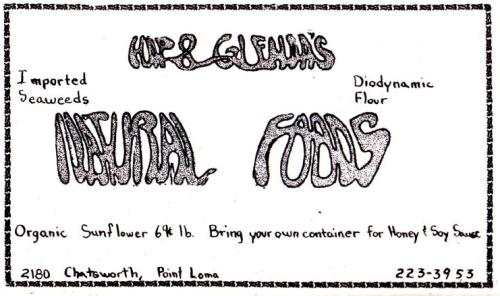 HAP & GLENNA'S
Imported
Seaweeds
Diodynamic
Flour
NATURAL FOODS
Organic Sunflower 69¢ lb. Bring your own container for Honey & Soy Sauce
2180 Chatsworth, Point Loma
223-3953